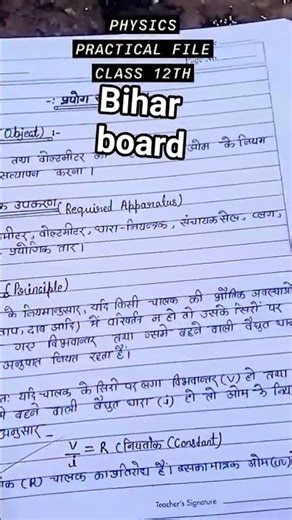 PHYSICS
PRACTICAL FILE
CLASS 12TH
Bihar
board
-: प्रयोग
(Object) :-
तथा वोल्टमीटर
ओम के नियम
सत्यापन करना।
उपकरण (Required Apparatus)
वोल्टमीटर, धारा-नियन्त्रक, संचायक सेल, प्लग,
तार।
(Principle)
के नियमानुसार, यदि किसी चालक की भौतिक अवस्थाओं
ताप, दाब आदि) में परिवर्तन न हो तो उसके सिरों पर
गए विभवान्तर तथा उसमें बहने वाली वैद्युत धारा
अनुपात नियत रहता है।
यदि चालक के सिरों पर लगा विभवान्तर (V) हो तथा
बहने वाली वैद्युत धारा (i) हो तो ओम के
अनुसार_
V/i = R (नियतांक (Constant)
(R) चालक का प्रतिरोध है। इसका मात्रक ओम
Teacher's Signature